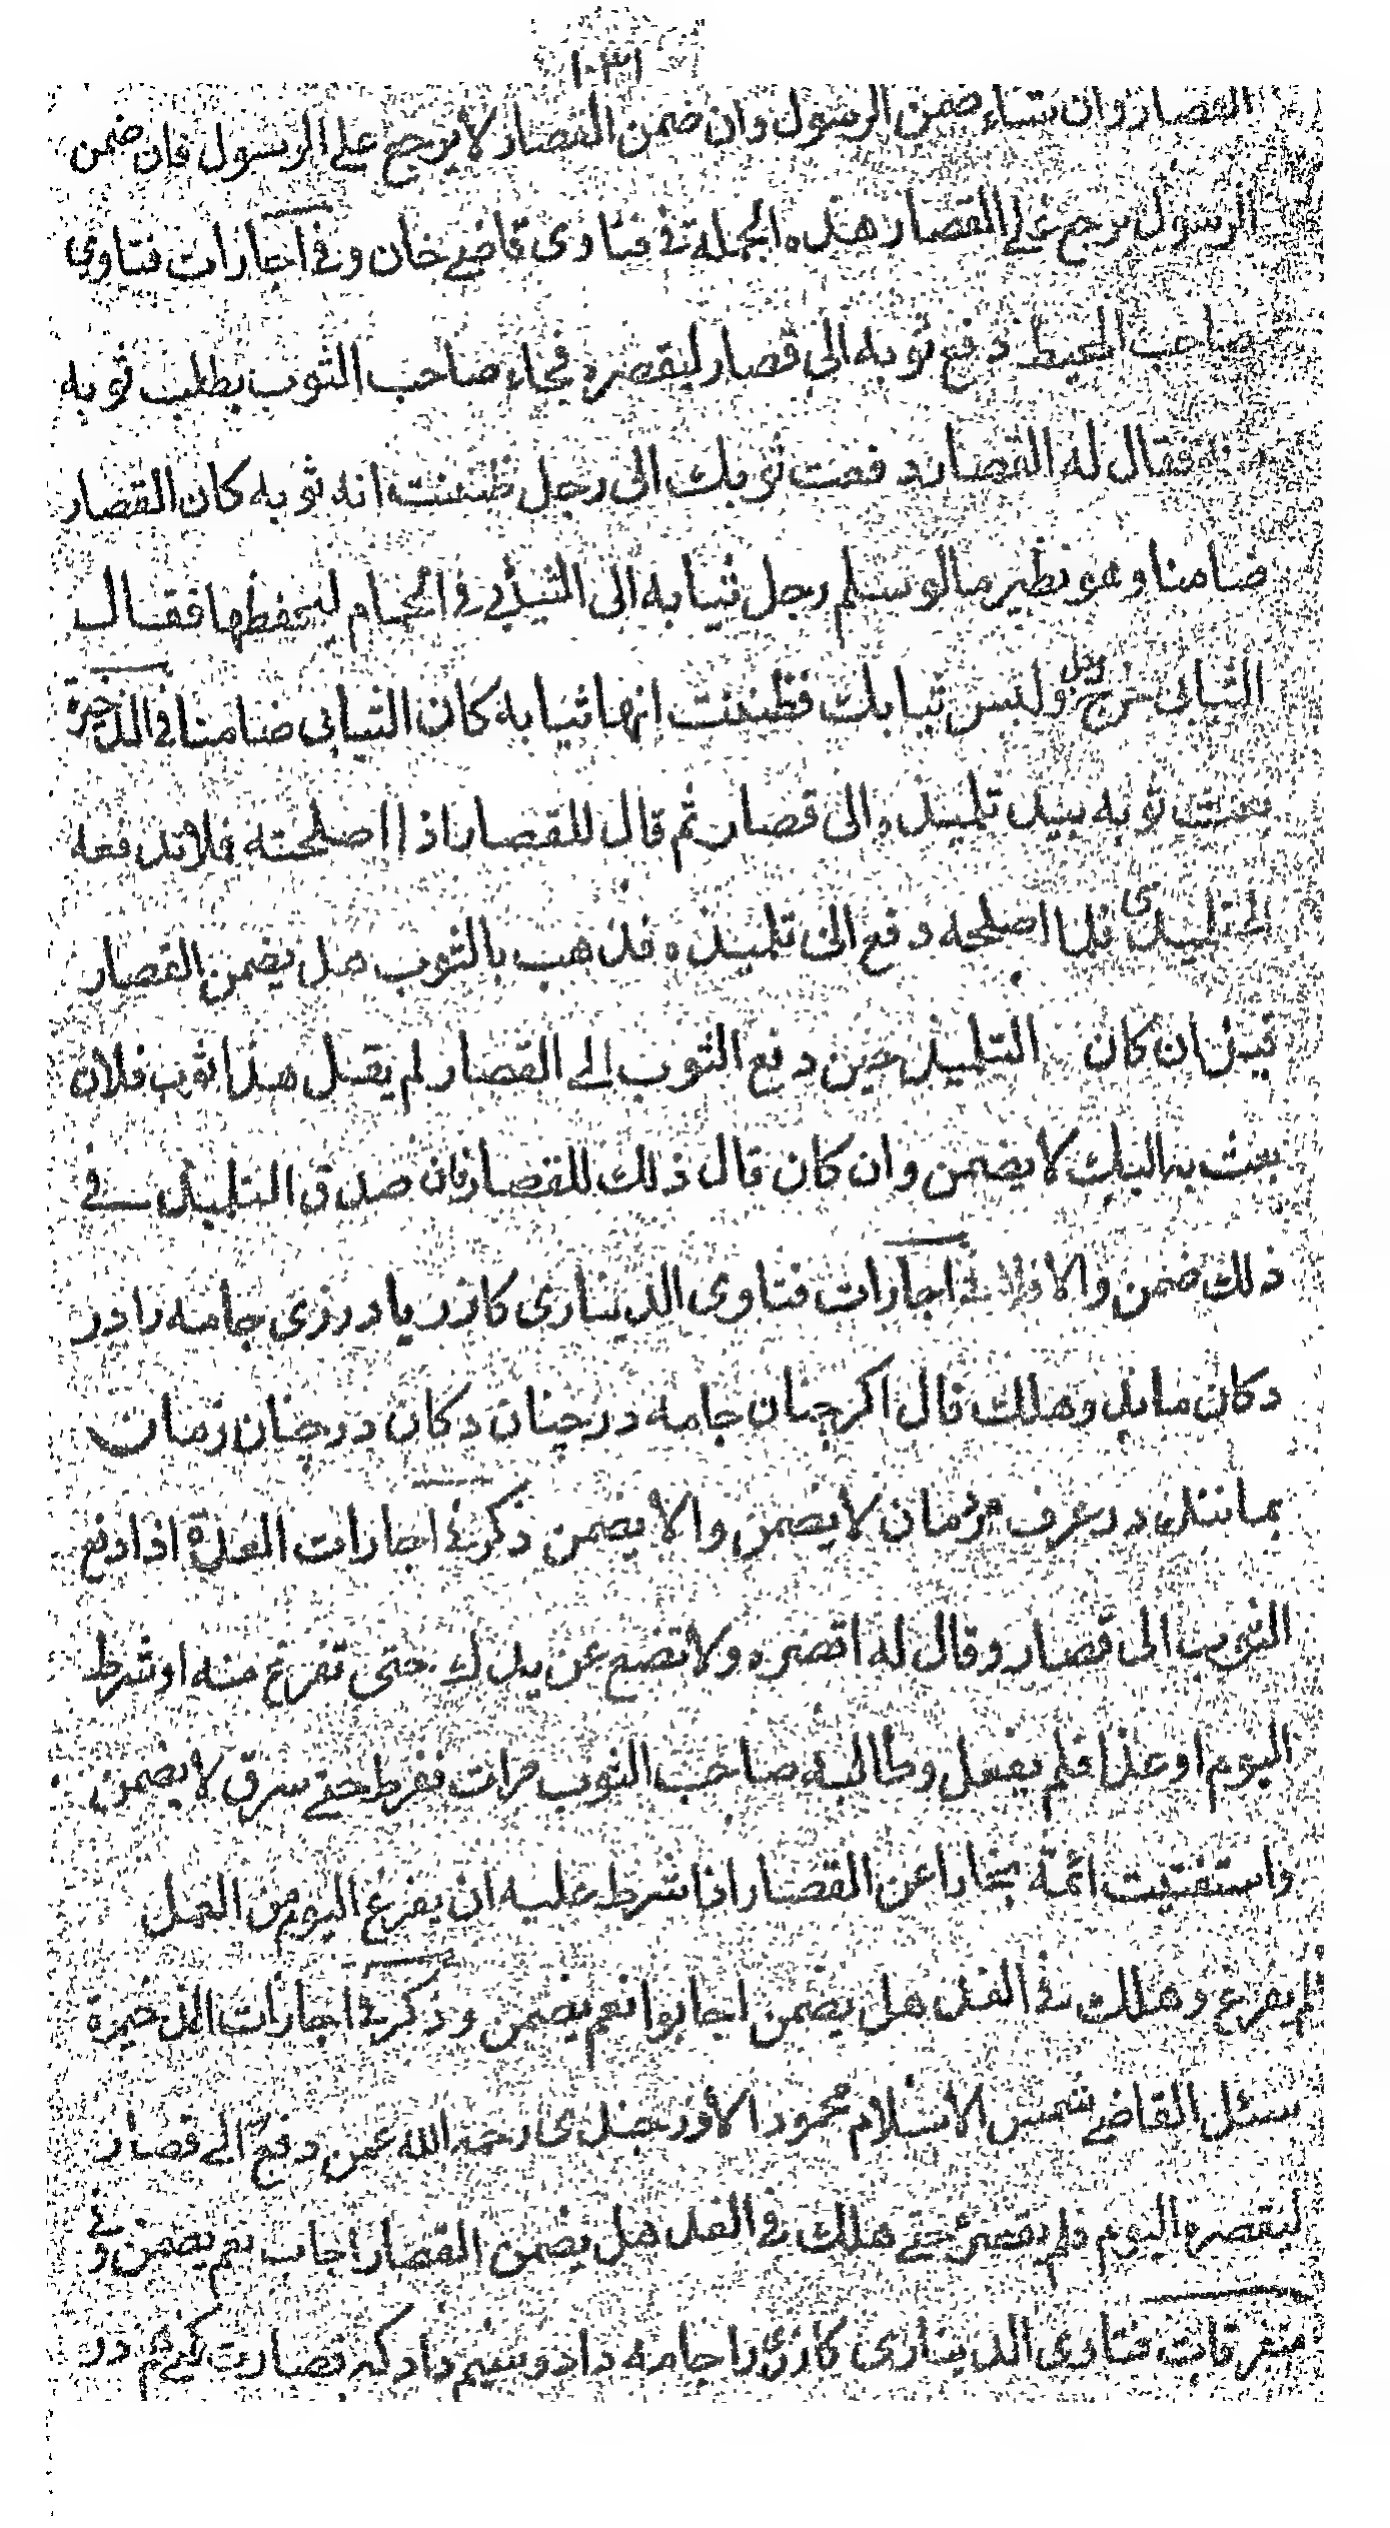 ١٠٣١
القصار وان شاء ضمن الرسول وان ضمن القصار لا يرجع على الرسول فان ضمن
الرسول يرجع على القصار هذه الجملة في فتاوى قاضي خان وفي اجارات فتاوي
صاحب المحيط دفع ثوبه الى قصار ليقصره فجاء صاحب الثوب يطلب ثوبه
منه فقال له القصار دفعت ثوبك الى رجل ظننت انه ثوبه كان القصار
ضامنا وهو نظير ما لو سلم رجل ثيابه الى الثيابي في الحمام ليحفظها فقال
الثيابي خرج رجل ولبس ثيابك فظننت انها ثيابه كان الثيابي ضامنا في الذخيرة
بعث ثوبه بيد تلميذه الى قصار ثم قال للقصار اذا اصلحته فلا تدفعه
الى تلميذي فلما اصلحه دفع الى تلميذه فذهب بالثوب هل يضمن القصار
قيل ان كان التلميذ حين دفع الثوب الي القصار لم يقل هذا ثوب فلان
بعث به اليك لا يضمن وان كان قال ذلك للقصار فان صدق التلميذ في
ذلك ضمن والا فلا في اجارات فتاوى الديناري كازر يا درزى جامه را در
دكان ماند وهلك قال اكر چنان جامه در چنان دكان در چنان زمان
بمانند در عرف مردمان لا يضمن والا يضمن ذكر في اجارات العدة اذا دفع
الثوب الى قصار وقال له اقصره ولا تضع عن يدك حتى تفرغ منه او شرط
اليوم او غدا فلم يفعل وطالبه صاحب الثوب مرات ففرط حتى سرق لا يضمن
واستفتيت ائمة بخارا عن القصار اذا شرط عليه ان يفرغ اليوم من العمل
لم يفرغ وهلك في الغد هل يضمن اجابوا نعم يضمن وذكر في اجارات الذخيرة
سئل القاضي شمس الاسلام محمود الاوزجندي رحمه الله عمن دفع الى قصار
ليقصره اليوم فلم يقصره حتى هلك في الغد هل يضمن القصار اجاب نعم يضمن وفي
متفرقات فتاوى الديناري كازرى را جامه داد وسيم داد كه قصارت كنم در